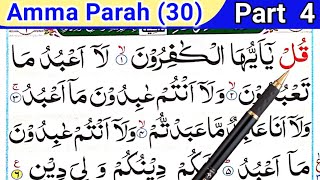 Amma Parah (30) Part 4
قُلْ يٰٓاَيُّهَا الْكٰفِرُوْنَ ۙ۱ لَآ اَعْبُدُ مَا
تَعْبُدُوْنَ ۙ۲ وَلَآ اَنْتُمْ عٰبِدُوْنَ مَآ اَعْبُدُ ۚ۳
وَلَآ اَنَا عَابِدٌ مَّا عَبَدْتُّمْ ۙ۴ وَلَآ اَنْتُمْ عٰبِدُوْنَ
مَآ اَعْبُدُ ۵ لَكُمْ دِيْنُكُمْ وَلِيَ دِيْنِ ۶